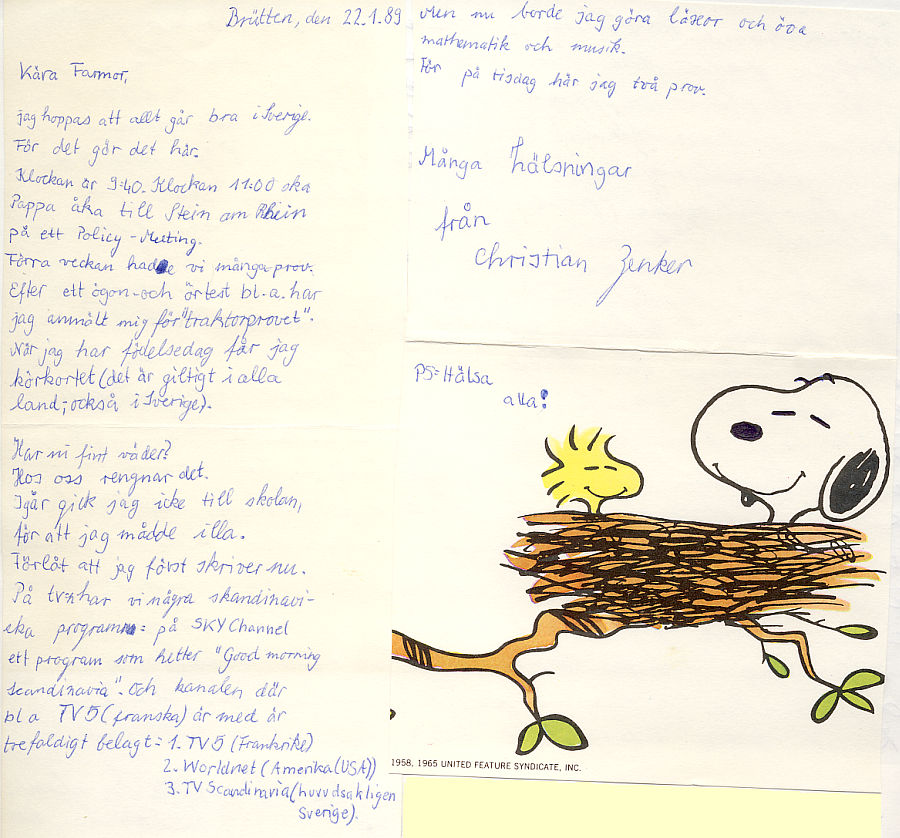 Brütten, den 22.1.89
Kära Farmor,
jag hoppas att allt går bra i Sverige.
För det gör det här.
Klockan är 9:40. Klockan 11:00 ska
Pappa åka till Stein am Rhein
på ett Policy-Meeting.
Förra veckan hadde vi många prov.
Efter ett ögon- och örtest bl.a. har
jag anmält mig för "traktorprovet".
När jag har födelsedag får jag
körkortet (det är giltigt i alla
land; också i Sverige).
Har ni fint väder?
Hos oss rengnar det.
Igår gick jag icke till skolan,
för att jag mådde illa.
Förlåt att jag först skriver nu.
På tv:n har vi några skandinavi-
ska programm: på SKY Channel
ett program som hetter "Good morning
scandinavia". Och kanalen där
bl a TV5 (franska) är med är
trefaldigt belagt: 1. TV5 (Frankrike)
2. Worldnet (Amerika (USA))
3. TV Scandinavia (huvudsakligen
Sverige).
Men nu borde jag göra läxor och öva
mathematik och musik.
För på tisdag har jag två prov.
Många hälsningar
från
Christian Zenker
PS: Hälsa
alla!
1958, 1965 UNITED FEATURE SYNDICATE, INC.